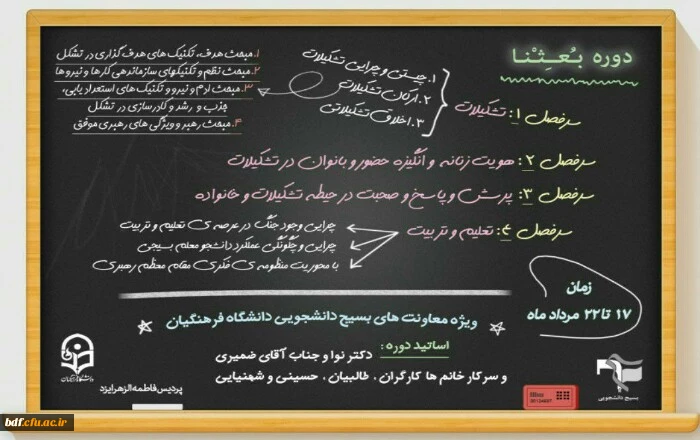 دوره بُعِثْنا
سرفصل ۱: تشکیلات
۱. چیستی و چرایی تشکیلات
۲. ارکان تشکیلات
۳. اخلاق تشکیلاتی
۱. مبحث هدف، تکنیک های هدف گذاری در تشکل
۲. مبحث نظم و تکنیکهای سازماندهی کارها و نیروها
۳. مبحث نیرو و تکنیک های استعدادیابی،
جذب و رشد و کادرسازی در تشکل
۴. مبحث رهبر و ویژگی های رهبری موفق
سرفصل ۲: هویت زنانه و انگیزه حضور بانوان در تشکیلات
سرفصل ۳: پرسش و پاسخ و صحبت در حیطه تشکیلات و خانواده
سرفصل ۴: تعلیم و تربیت
چرایی وجود جنگ در عرصه ی تعلیم و تربیت
چرایی و چگونگی عملکرد دانشجو معلم بسیجی
با محوریت منظومه ی فکری مقام معظم رهبری
زمان
۱۷ تا ۲۲ مرداد ماه
ویژه معاونت های بسیج دانشجویی دانشگاه فرهنگیان
اساتید دوره: دکتر نوا و جناب آقای ضمیری
و سرکار خانم ها کارگران، طالبیان، حسینی و شهنیایی
بسیج دانشجویی
دانشگاه فرهنگیان
پردیس فاطمه الزهرا یزد
bdf.cfu.ac.ir